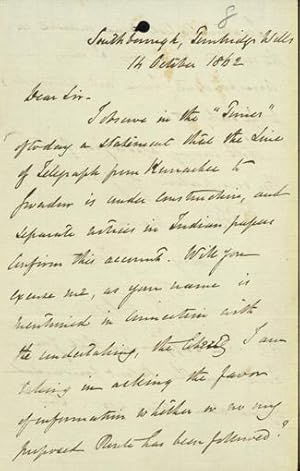 8
Southborough, Tunbridge Wells
14 October 1862
Dear Sir -
I observe in the "Times"
of today a statement that the Line
of Telegraph from Kurrachee to
Gwadur is under construction, and
separate notices in Indian papers
confirm this account. Will you
excuse me, as your name is
mentioned in connection with
the undertaking, the liberty I am
taking in asking the favor
of information whether or no my
proposed Route has been followed?